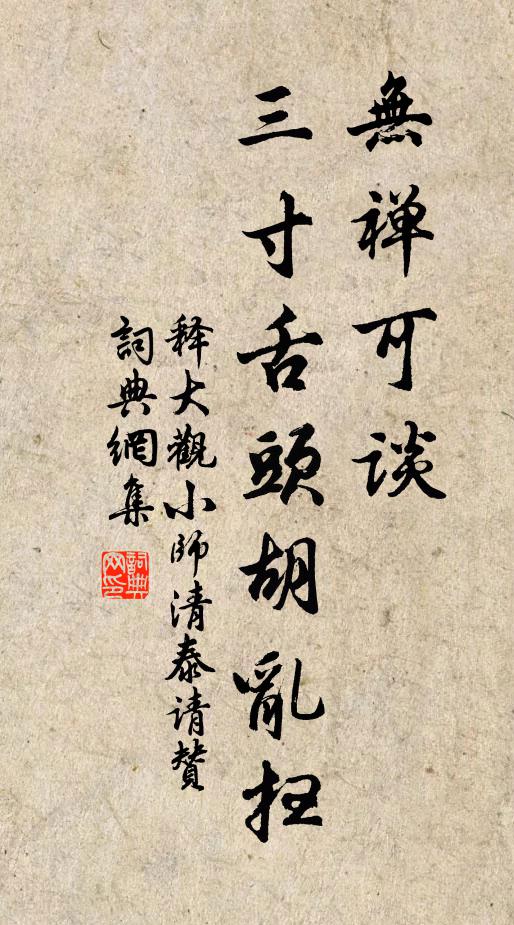 無禅可谈
三寸舌頭胡亂扭
释大觀小師清泰请贊
詞典網集
詞典网印